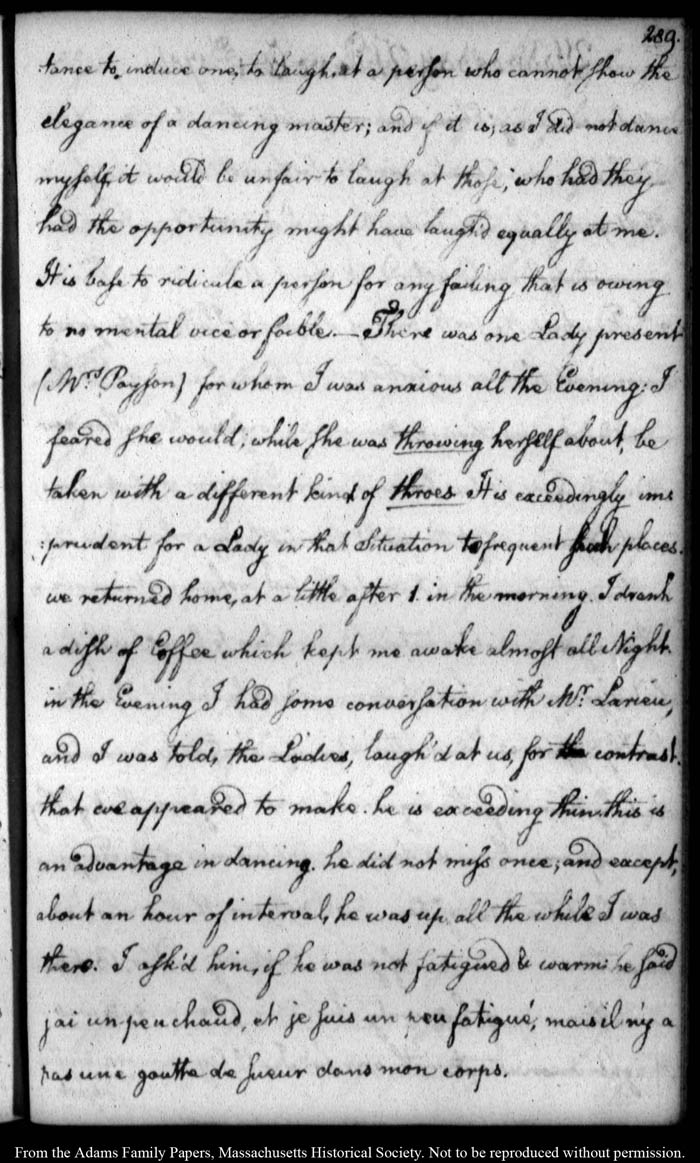 289.
tance to induce one, to laugh, at a person who cannot show the
elegance of a dancing master; and if it is, as I did not dance
myself, it would be unfair to laugh at those, who had they
had the opportunity might have laugh'd equally at me.
It is base to ridicule a person for any failing that is owing
to no mental vice or foible.—There was one Lady present
(Mrs. Payson) for whom I was anxious all the Evening: I
feared she would, while she was throwing herself about, be
taken with a different kind of throes. It is exceedingly im:
:prudent for a Lady in that Situation to frequent such places.
we returned home, at a little after 1. in the morning. I drank
a dish of Coffee which kept me awake almost all Night.
in the Evening I had some conversation with Mr. Larieu,
and I was told, the Ladies, laugh'd at us, for the contrast.
that we appeared to make. he is exceeding thin. this is
an advantage in dancing. he did not miss once; and except,
about an hour of interval, he was up all the while I was
there. I ask'd him, if he was not fatigued & warm: he said
j'ai un peu chaud, et je suis un peu fatigué, mais il n'y a
pas une goutte de sueur dans mon corps.
From the Adams Family Papers, Massachusetts Historical Society. Not to be reproduced without permission.